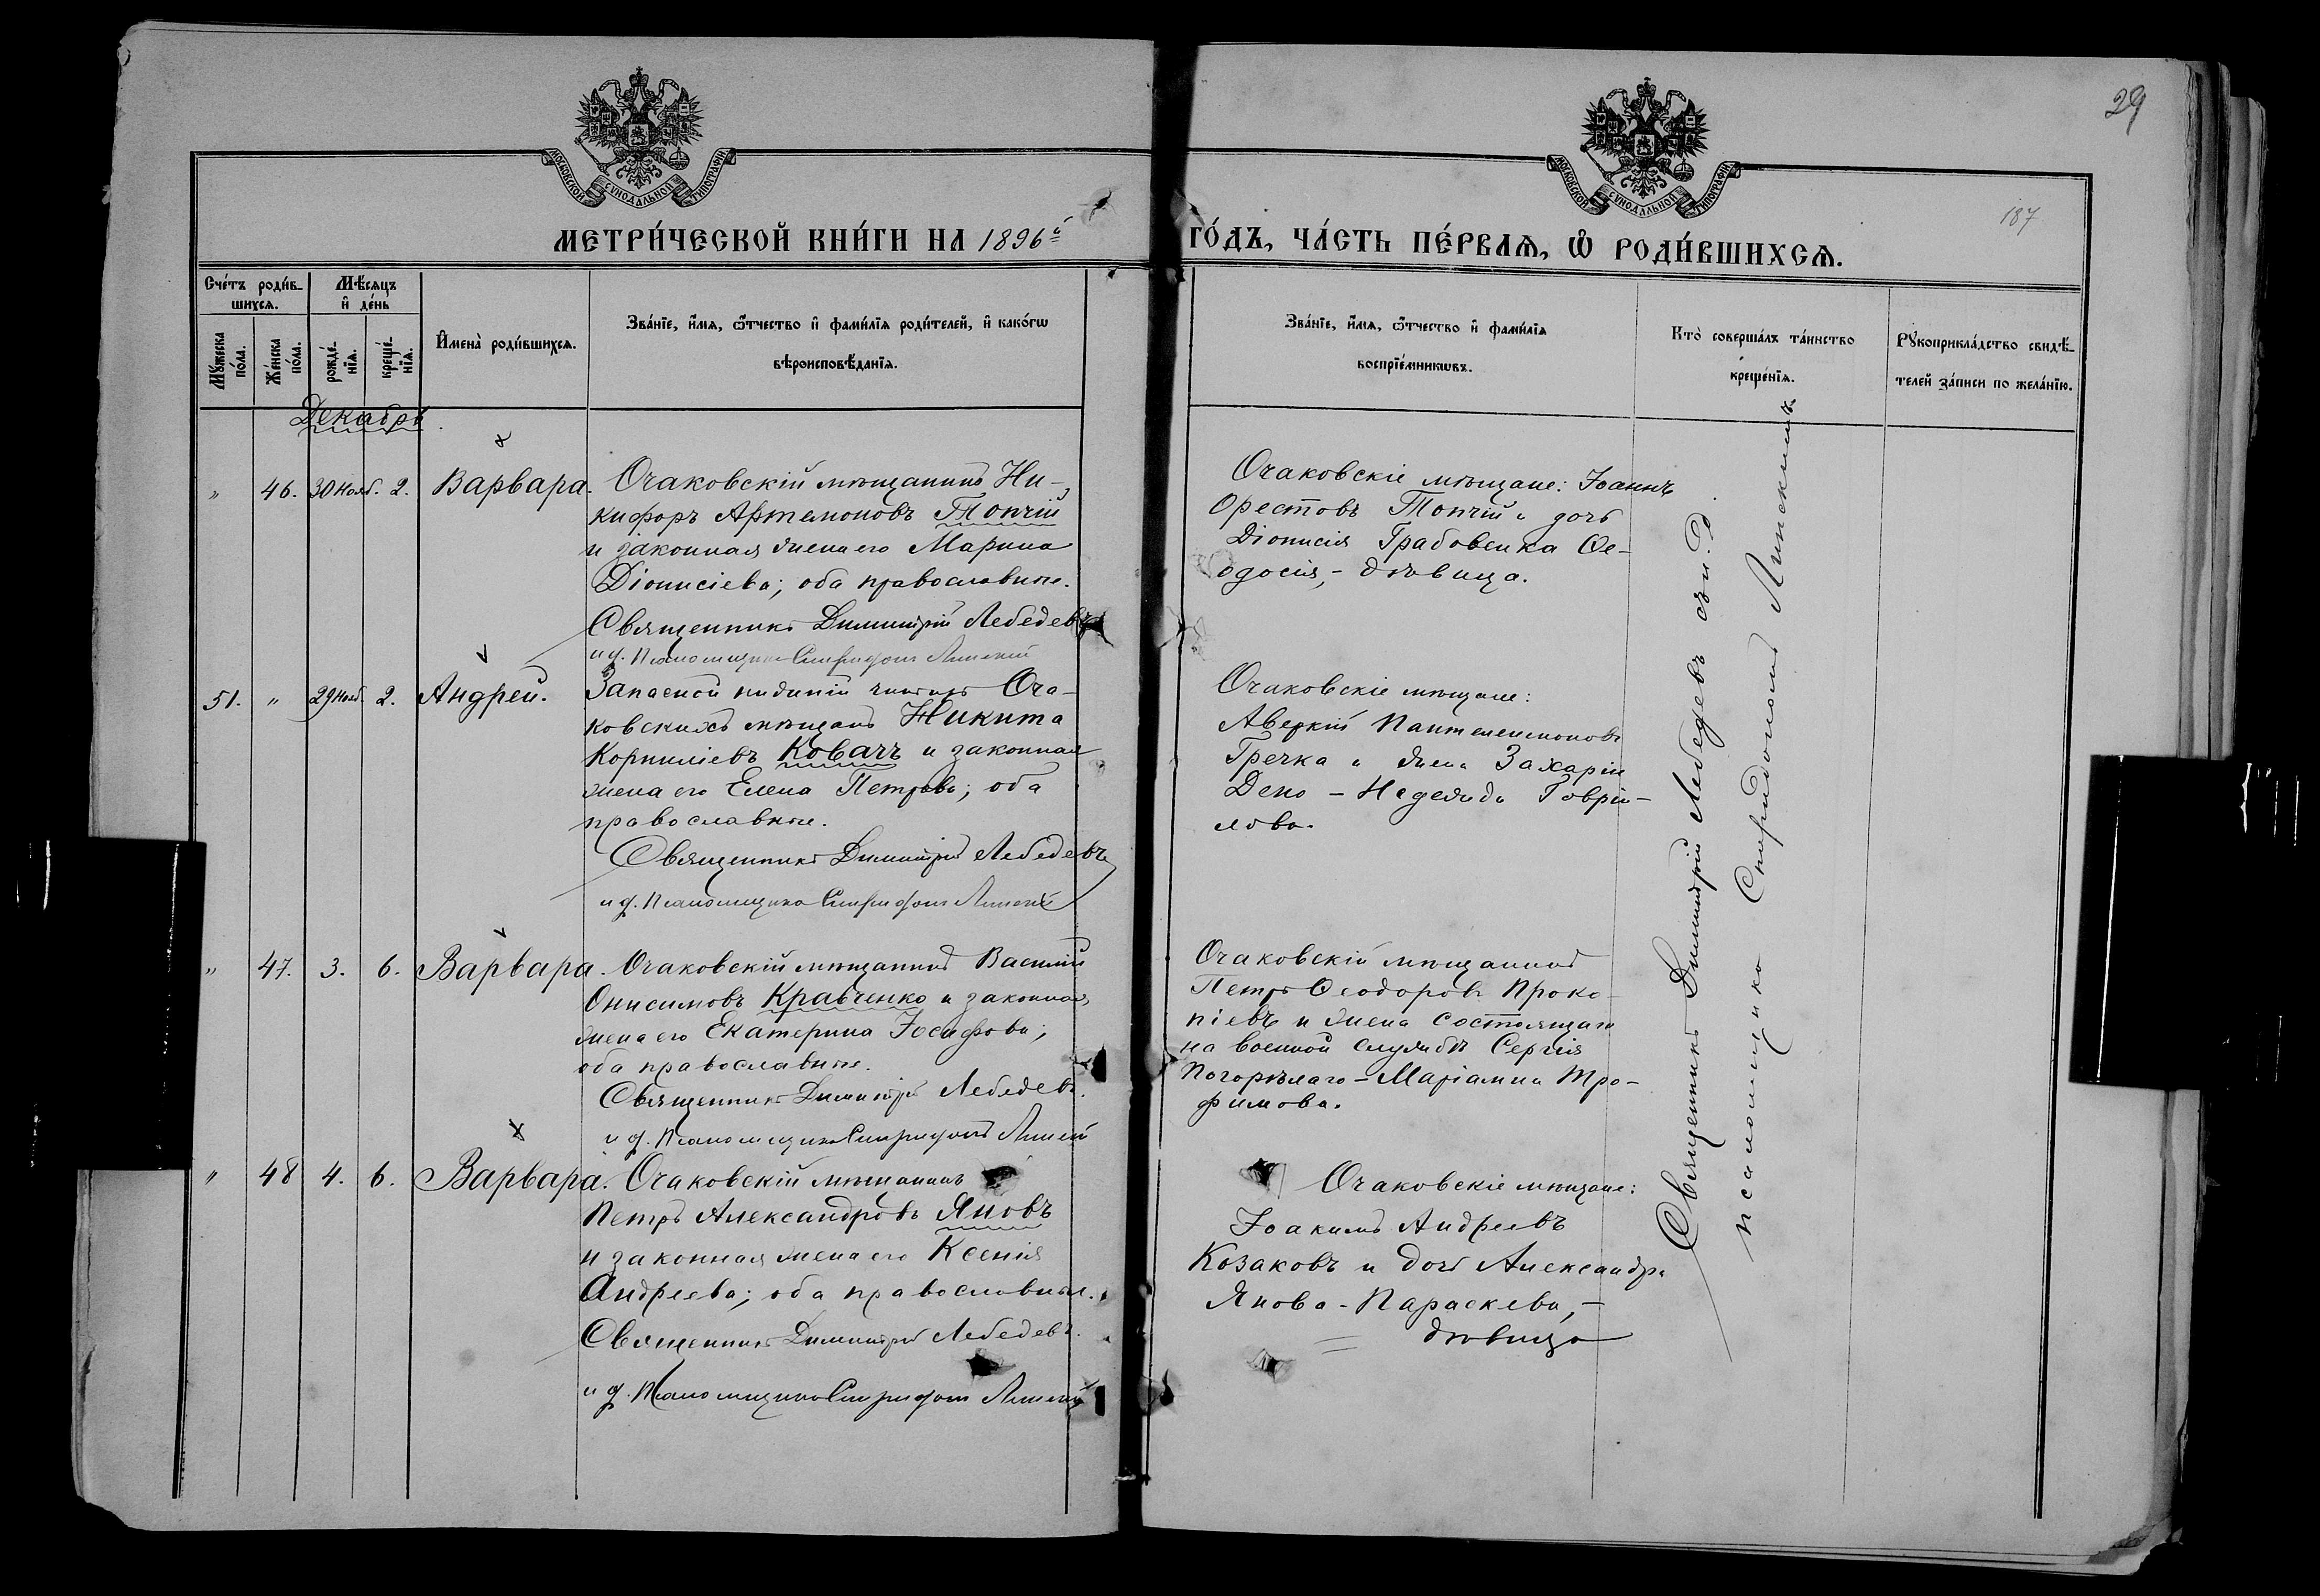 29
187
МОСКОВСКОЙ СѴНОДАЛЬНОЙ ТИПОГРАФІИ
МОСКОВСКОЙ СѴНОДАЛЬНОЙ ТИПОГРАФІИ
МЕТРИ́ЧЕСКОЙ КНИ́ГИ НА 1896й ГО́ДЪ, ЧА́СТЬ ПЕ́РВАѦ, Ѽ РОДИ́ВШИХСѦ.
Сче́тъ роди́в-
шихсѧ.
Мꙋ́жеска
по́ла.
Же́нска
по́ла.
Мѣ́сѧцъ
и҆ де́нь
рожде́-
нїѧ.
креще́-
нїѧ.
И҆мена̀ роди́вшихсѧ.
Зва́нїе, и҆́мѧ, ѻ҆́тчество и҆ фами́лїѧ роди́телей, и҆ како́гѡ
вѣроисповѣ́данїѧ.
Зва́нїе, и҆́мѧ, ѻ҆́тчество и҆ фами́лїѧ
воспрїе́мникѡвъ.
Кто̀ соверша́лъ та́инство
креще́нїѧ.
Рꙋкоприкла́дство свидѣ́-
телей за́писи по жела́нїю.
Декабрь.
" 46. 30 Нояб. 2. Варвара.
Очаковскій мѣщанинъ Ни-
кифоръ Артемоновъ Топчій
и законная жена его Марина
Діонисіева; оба православные.
Священникъ Димитрій Лебедевъ
и д. Псаломщика Спиридонъ Линскій
Очаковскіе мѣщане: Іоаннъ
Орестовъ Топчій и дочь
Діонисія Грабовенка Ѳе-
одосія, - дѣвица.
51. " 29 Нояб. 2. Андрей.
Запасной нижній чинъ изъ Оча-
ковскихъ мѣщанъ Никита
Корниліевъ Ковачъ и законная
жена его Елена Петрова; оба
православные.
Священникъ Димитрій Лебедевъ
и д. Псаломщика Спиридонъ Линскій
Очаковскіе мѣщане:
Аверкій Пантелеимоновъ
Гречка и жена Захаріи
Деко - Надежда Гаврі-
лова.
" 47. 3. 6. Варвара.
Очаковскій мѣщанинъ Василій
Онисимовъ Кравченко и законная
жена его Екатерина Іосифова;
оба православные.
Священникъ Димитрій Лебедевъ.
и д. Псаломщика Спиридонъ Линскій
Очаковскій мѣщанинъ
Петръ Ѳеодоровъ Проко-
піевъ и жена состоящаго
на военной службѣ Сергія
Погорѣлаго - Маріамна Тро-
фимова.
" 48 4. 6. Варвара.
Очаковскій мѣщанинъ
Петръ Александровъ Яновъ
и законная жена его Ксенія
Андреева; оба православные.
Священникъ Димитрій Лебедевъ.
и д. Псаломщика Спиридонъ Линскій
Очаковскіе мѣщане:
Іоакимъ Андреевъ
Козаковъ и дочь Александра
Янова - Параскева, -
дѣвица
Священникъ Димитрій Лебедевъ съ и. д.
псаломщика Спиридономъ Линскимъ.